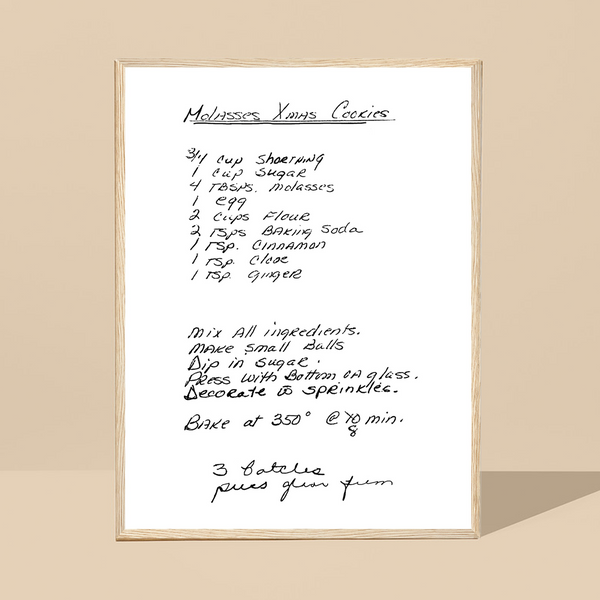 Molasses Xmas Cookies
3/4 cup Shortning
1 cup Sugar
4 TBSPS. Molasses
1 egg
2 cups Flour
2 TSPS Baking Soda
1 TSP. Cinnamon
1 TSP. Clove
1 TSP. Ginger
Mix All ingredients.
Make Small Balls
Dip in Sugar.
Press with Bottom of glass.
Decorate w̄ sprinkles.
Bake at 350° @ 10 min.
8
3 batches